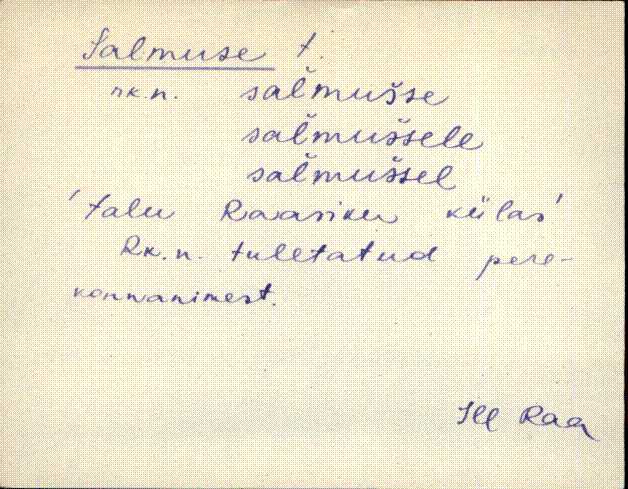 Salmuse t.
rk.n. sal̆mušse
sal̆muššele
sal̆muššel
'talu Raasiku külas'
Rk.n. tuletatud pere-
konnanimest.
Ill Raa